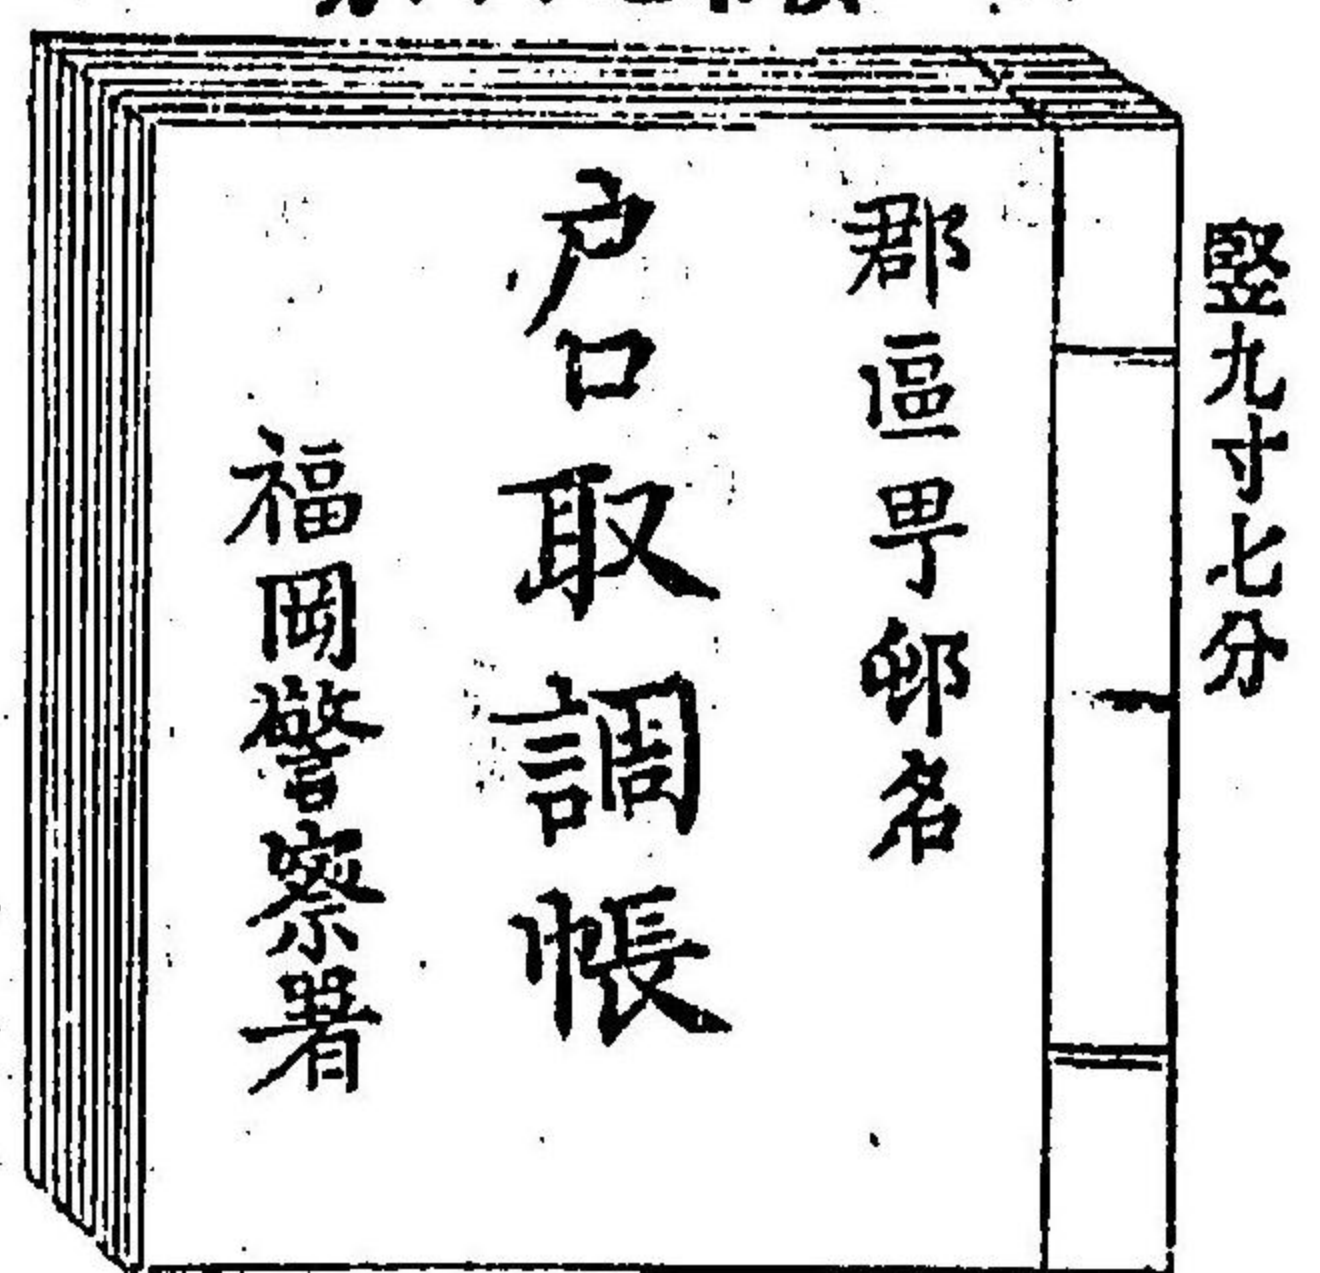 竪九寸七分
郡區甼邨名
戶口取調帳
福岡警察署